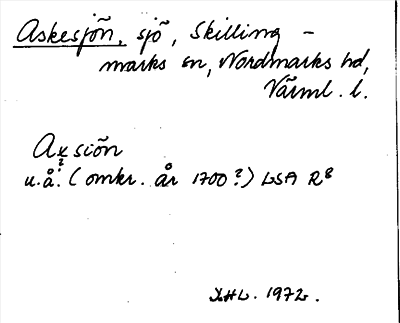 Askesjön, sjö, Skilling -
marks sn, Nordmarks hd,
Värml. l.
Axsiön
?
u.å. (omkr. år 1700?) LSA R8
HL. 1972.